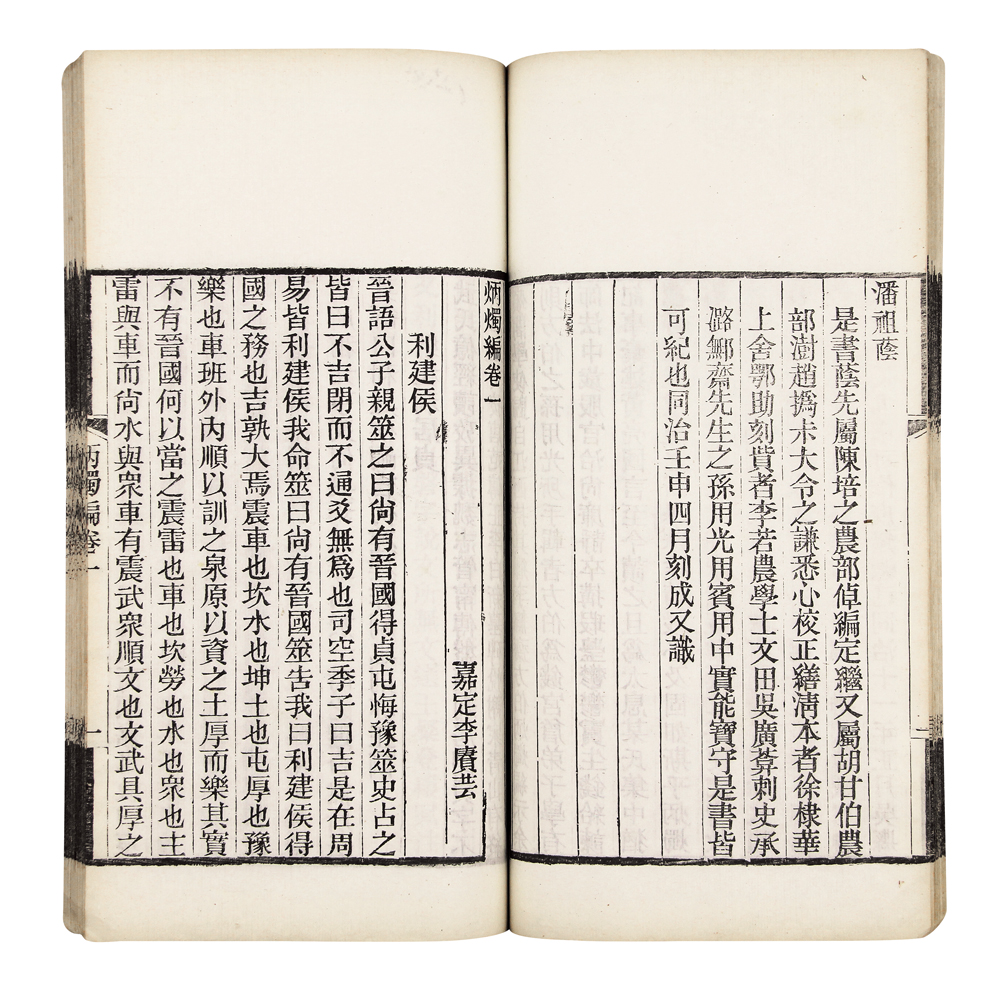 潘祖蔭
是書蔭先屬陳培之農部倬編定繼又屬胡甘伯農
部澍趙撝尗大令之謙悉心校正繕淸本者徐棣華
上舍鄂助刻貲者李若農學士文田吳廣葊刺史承
潞鄦齋先生之孫用光用賓用中實能寶守是書皆
可紀也同治壬申四月刻成又識
炳燭編卷一
嘉定李賡芸
利建侯
晉語公子親筮之曰尙有晉國得貞屯悔豫筮史占之
皆曰不吉閉而不通爻無爲也司空季子曰吉是在周
易皆利建侯我命筮曰尙有晉國筮告我曰利建侯得
國之務也吉孰大焉震車也坎水也坤土也屯厚也豫
樂也車班外內順以訓之泉原以資之土厚而樂其實
不有晉國何以當之震雷也車也坎勞也水也衆也主
雷與車而尙水與衆車有震武衆順文也文武具厚之
炳燭編卷一
一